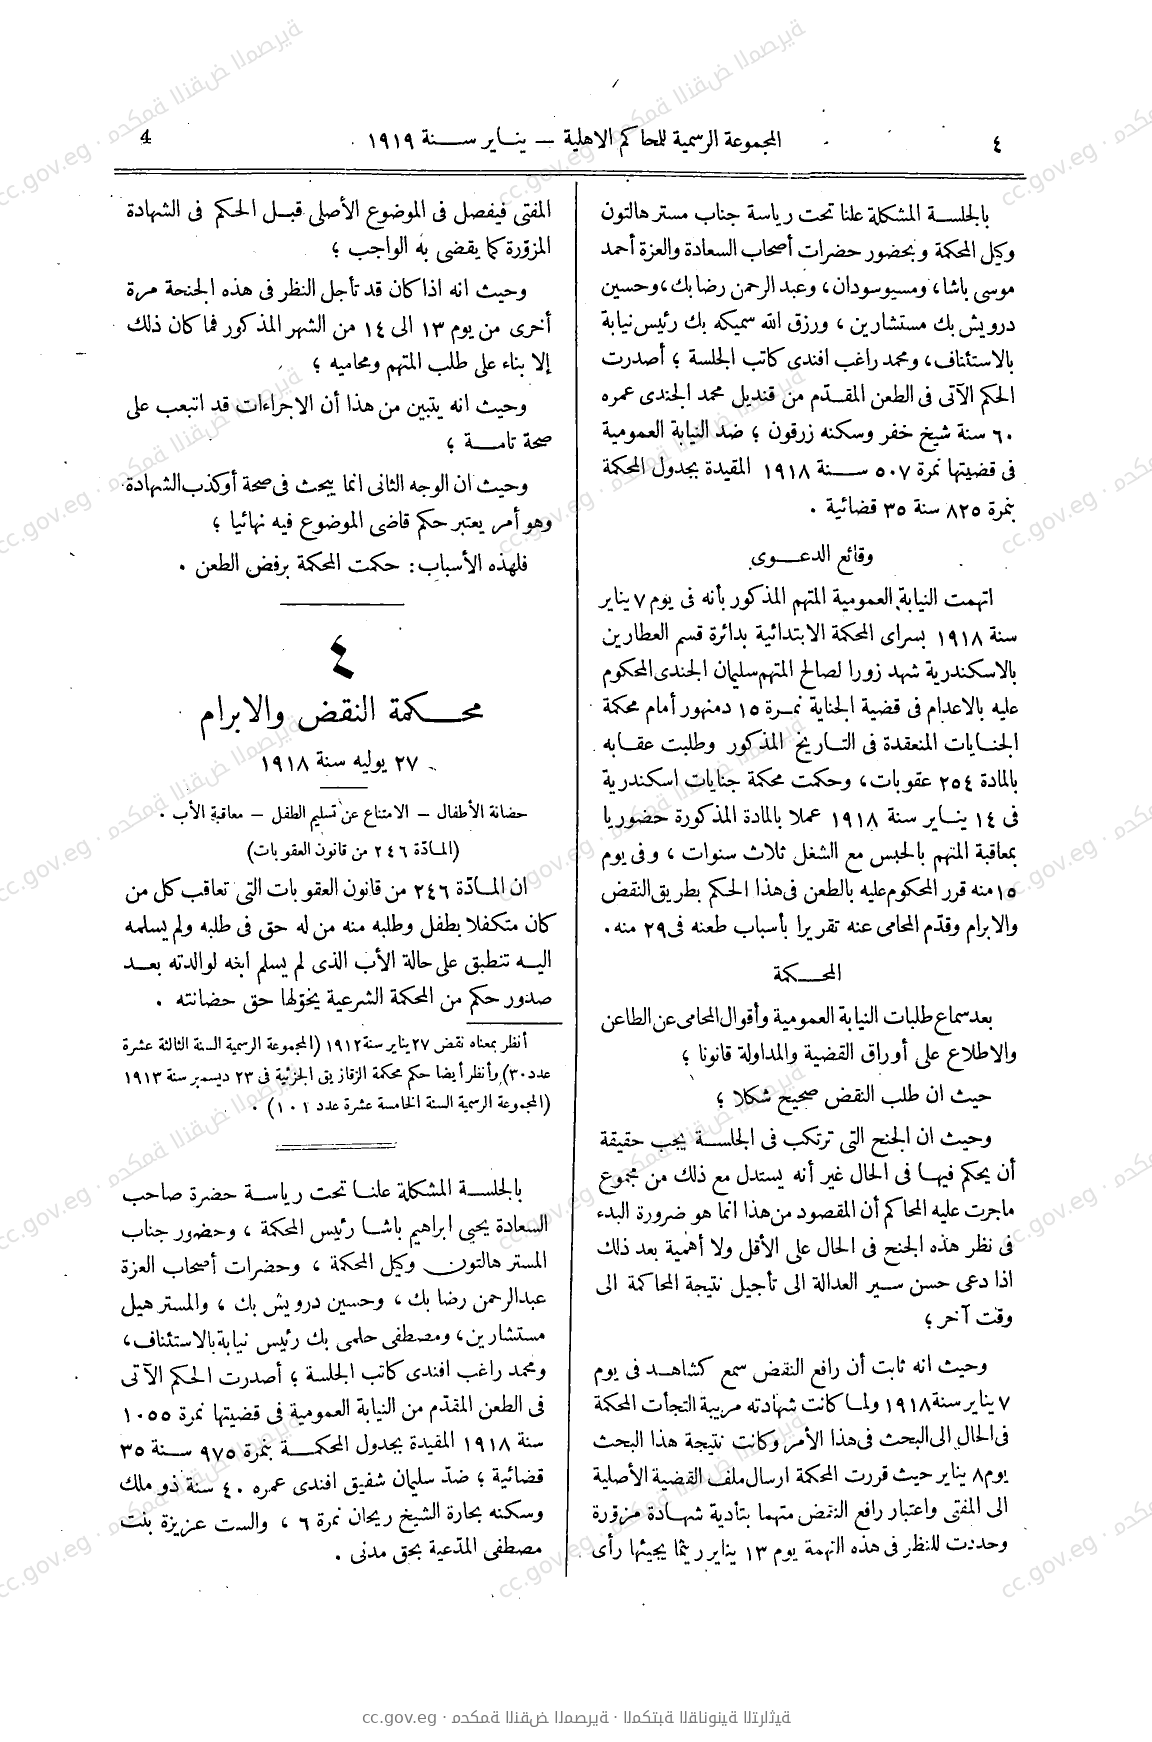 ٤
المجموعة الرسمية للمحاكم الاهلية — ينــاير ســـنة ١٩١٩
4
بالجلســة المشكلة علنا تحت رياسة جناب مستر هالتون
وكيل المحكمة وبحضور حضرات أصحاب السعادة والعزة أحمد
موسى باشا، ومسيو سودان، وعبد الرحمن رضا بك، وحسين
درويش بك مستشارين، ورزق الله سميكه بك رئيس نيابة
بالاستئناف، ومحمد راغب افندى كاتب الجلسة؛ أصدرت
الحكم الآتى فى الطعن المقــدّم من قنديل محمد الجندى عمره
٦٠ سنة شيخ خفر وسكنه زرقون؛ ضد النيابة العمومية
فى قضيتها نمرة ٥٠٧ ســـنة ١٩١٨ المقيدة بجدول المحكمة
بنمرة ٨٢٥ سنة ٣٥ قضائية .
وقائع الدعــــوى
اتهمت النيابة العمومية المتهم المذكور بأنه فى يوم ٧ يناير
سنة ١٩١٨ بسراى المحكمة الابتدائية بدائرة قسم العطارين
بالاسكندرية شهد زورا لصالح المتهم سليمان الجندى المحكوم
عليه بالاعدام فى قضية الجناية نمــرة ١٥ دمنهور أمام محكمة
الجنــايات المنعقدة فى التــاريخ المذكور وطلبت عقــابه
بالمادة ٢٥٤ عقوبات، وحكمت محكمة جنايات اسكندرية
فى ١٤ ينــاير سنة ١٩١٨ عملا بالمادة المذكورة حضوريا
بمعاقبة المتهم بالحبس مع الشغل ثلاث سنوات، وفى يوم
١٥ منه قرر المحكوم عليه بالطعن فى هذا الحكم بطريق النقض
والابرام وقدّم المحامى عنه تقريرا بأسباب طعنه فى ٢٩ منه.
المحـــكمة
بعد سماع طلبات النيابة العمومية وأقوال المحامى عن الطاعن
والاطلاع على أوراق القضية والمداولة قانونا؛
حيث ان طلب النقض صحيح شكلا؛
وحيث ان الجنح التى ترتكب فى الجلســة يجب حقيقة
أن يحكم فيهــا فى الحال غير أنه يستدل مع ذلك من مجموع
ماجرت عليه المحاكم أن المقصود من هذا انما هو ضرورة البدء
فى نظر هذه الجنح فى الحال على الأقل ولا أهمية بعد ذلك
اذا دعى حسن ســير العدالة الى تأجيل نتيجة المحاكمة الى
وقت آخر؛
وحيث انه ثابت أن رافع النقض سمع كشاهــد فى يوم
٧ يناير سنة ١٩١٨ ولمــا كانت شهادته مريبة التجأت المحكمة
فى الحال الى البحث فى هذا الأمر وكانت نتيجة هذا البحث
يوم ٨ يناير حيث قررت المحكمة ارسال ملف القضية الأصلية
الى المفتى واعتبار رافع النقض متهما بتأدية شهــادة مزوّرة
وحددت للنظر فى هذه التهمة يوم ١٣ يناير ريثما يجيئها رأى
المفتى فيفصل فى الموضوع الأصلى قبــل الحكم فى الشهادة
المزوّرة كما يقضى به الواجب؛
وحيث انه اذا كان قد تأجل النظر فى هذه الجنحة مرة
أخرى من يوم ١٣ الى ١٤ من الشهر المذكور فما كان ذلك
إلا بناء على طلب المتهم ومحاميه؛
وحيث انه يتبين من هذا أن الاجراءات قد اتبعت على
صحة تامــة؛
وحيث ان الوجه الثانى انما يبحث فى صحة أو كذب الشهادة
وهو أمر يعتبر حكم قاضى الموضوع فيه نهائيا؛
فلهذه الأسباب: حكمت المحكمة برفض الطعن .
٤
محــــكمة النقض والابرام
٢٧ يوليه سنة ١٩١٨
حضانة الأطفال — الامتناع عن تسليم الطفل — معاقبة الأب .
(المــادّة ٢٤٦ من قانون العقوبات)
ان المــادّة ٢٤٦ من قانون العقوبات التى تعاقب كل من
كان متكفلا بطفل وطلبه منه من له حق فى طلبه ولم يسلمه
اليــه تنطبق على حالة الأب الذى لم يسلم ابنه لوالدته بعــد
صدور حكم من المحكمة الشرعية يخوّلها حق حضانته .
أنظر بمعناه نقض ٢٧ يناير سنة ١٩١٢ (المجموعة الرسمية السنة الثالثة عشرة
عدد ٣٠) وأنظر أيضا حكم محكمة الزقازيق الجزئية فى ٢٣ ديسمبر سنة ١٩١٣
(المجموعة الرسمية السنة الخامسة عشرة عدد ١٠١) .
بالجلســة المشكلة علنــا تحت رياســة حضرة صاحب
السعادة يحيى ابراهيم باشــا رئيس المحكمة، وحضور جناب
المستر هالتون وكيل المحكمة، وحضرات أصحاب العزة
عبدالرحمن رضا بك، وحسين درويش بك، والمستر هيل
مستشارين، ومصطفى حلمى بك رئيس نيابة بالاستئناف،
ومحمد راغب افندى كاتب الجلسة؛ أصدرت الحكم الآتى
فى الطعن المقدّم من النيابة العمومية فى قضيتها نمرة ١٠٥٥
سنة ١٩١٨ المقيدة بجدول المحكمــة بنمرة ٩٧٥ ســنة ٣٥
قضائية؛ ضدّ سليمان شفيق افندى عمره ٤٠ سنة ذو ملك
وسكنه بحارة الشيخ ريحان نمرة ٦، والست عزيزة بنت
مصطفى المدّعية بحق مدنى .
cc.gov.eg · محكمة النقض المصرية · المكتبة القانونية التراثية